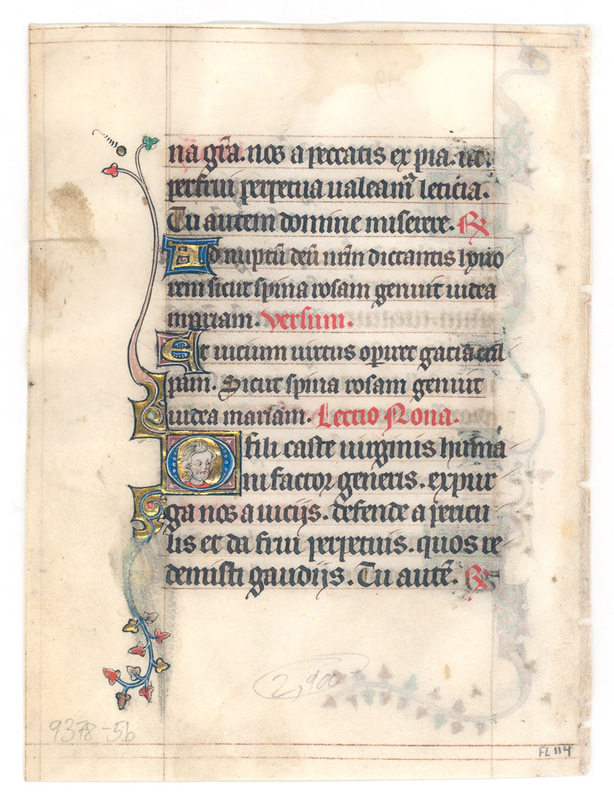 na gr̄a. nos a peccatis ex pia. ut.
perfrui perpetua ualeam̄ leticia.
Tu autem domine miserere. ℟
Ad nuptū nr̄m dictantis hono
rem sicut spina rosam genuit iudea
mariam. Versum.
Et uicium uirtus opiret gaciā cul
pam. Sicut spina rosam genuit
iudea mariam. Lectio Nona.
O fili caste uirginis huma
ni factor generis. expur
ga nos a uicijs. defende a pericu
lis et da frui perpetuis. quos re
demisti gaudijs. Tu autē. ℟
2,900
9378-5b
FL 114